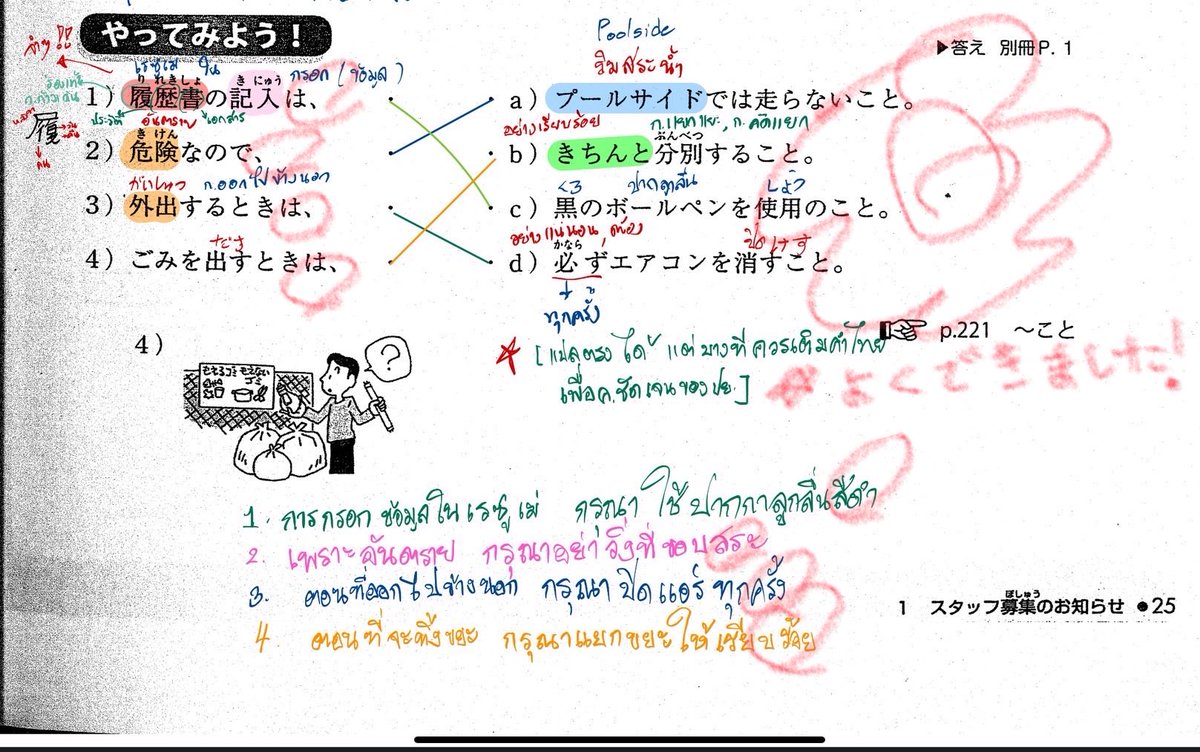 Poolside
やってみよう！
จำๆ !!
ริมสระน้ำ
▶答え 別冊P. 1
เรซูเม่ ใน กรอก (ข้อมูล)
りれきしょ きにゅう
1）履歴書の記入は、
a）プールサイドでは走らないこと。
履
ประวัติ อันตราย เอกสาร
อย่างเรียบร้อย ก.แยกแยะ, ก.คัดแยก
きけん
ぶんべつ
2）危険なので、
b）きちんと分別すること。
がいしゅつ ก.ออกไปข้างนอก
くろ ปากกาลูกลื่น しよう
3）外出するときは、
c）黒のボールペンを使用のこと。
だす
อย่างแน่นอน, ต้อง ปิด けす
かなら
4）ごみを出すときは、
d）必ずエアコンを消すこと。
ทุกครั้ง
p.221 ～こと
4）
もえるゴミ もえないゴミ
?
[แปลตรงได้ แต่บางทีควรเติมคำไทย
เพื่อค.ชัดเจนของปย.]
よくできました!
1. การกรอกข้อมูลในเรซูเม่ กรุณาใช้ปากกาลูกลื่นสีดำ
2. เพราะอันตราย กรุณาอย่าวิ่งที่ขอบสระ
3. ตอนที่ออกไปข้างนอก กรุณาปิดแอร์ทุกครั้ง
4. ตอนที่จะทิ้งขยะ กรุณาแยกขยะให้เรียบร้อย
ぼしゅう
1 スタッフ募集のお知らせ ●25